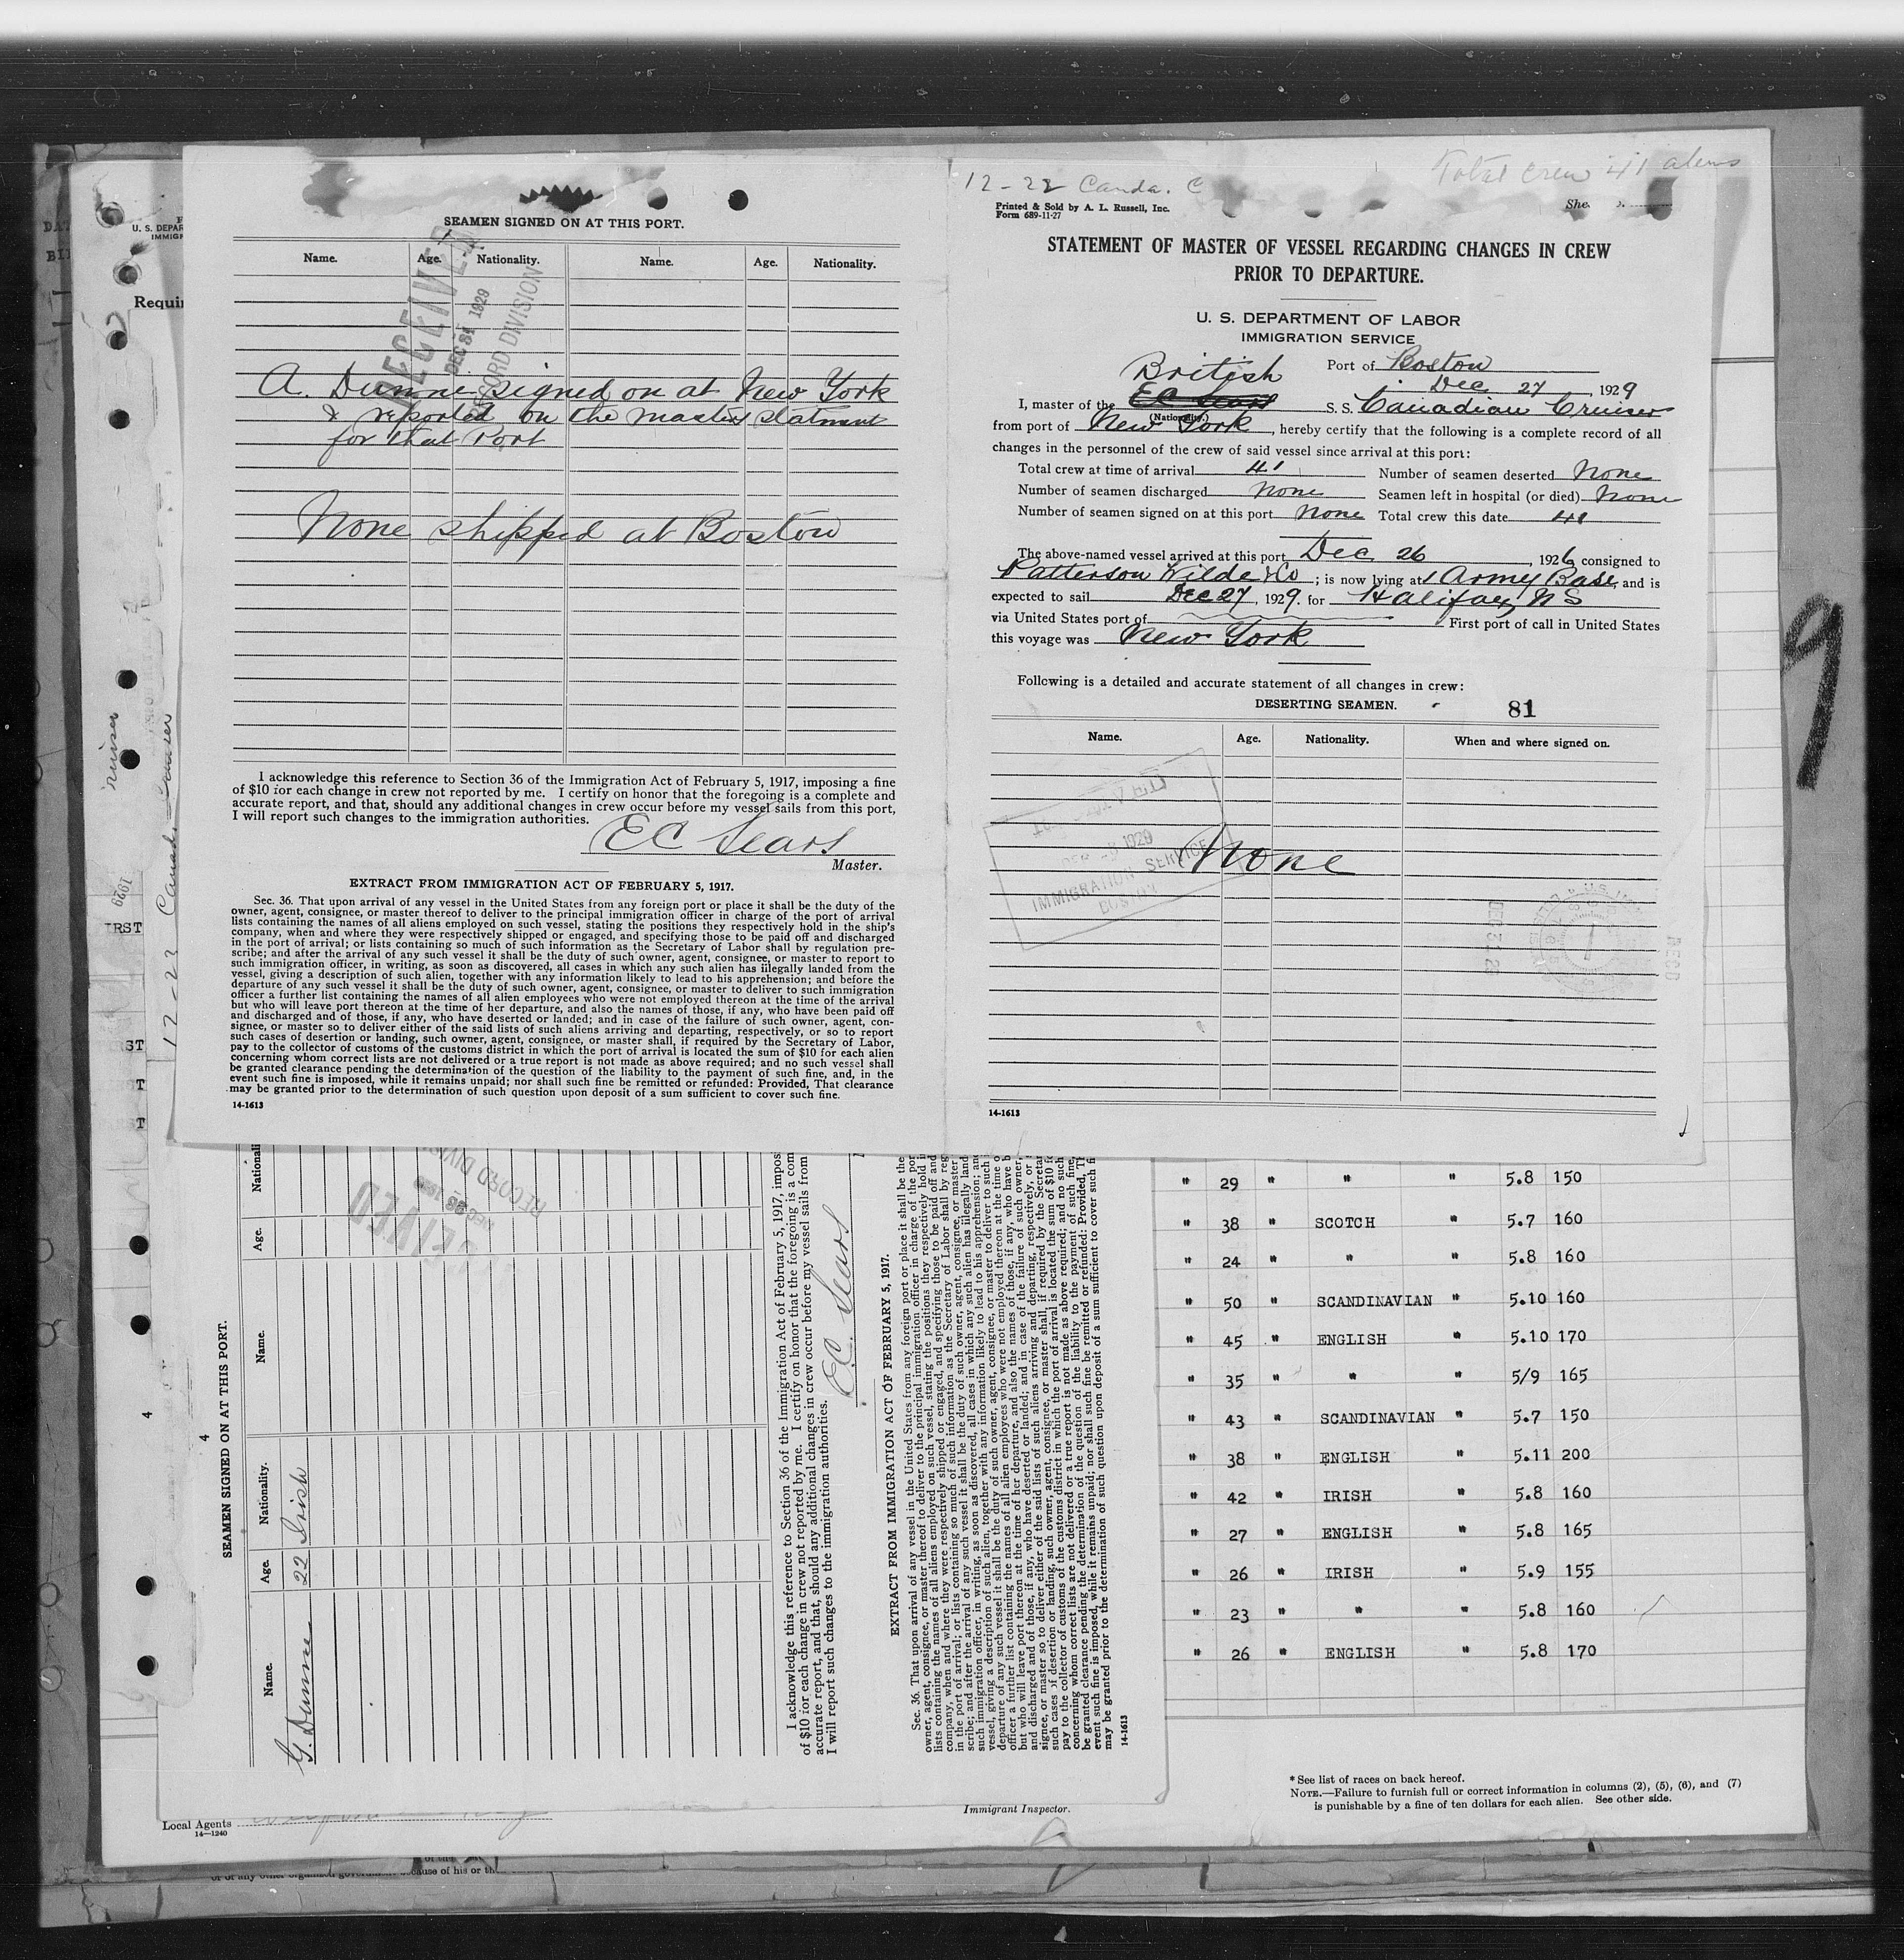 SEAMEN SIGNED ON AT THIS PORT.
Name. Age. Nationality. Name. Age. Nationality.
RECEIVED
DEC 31 1929
RECORD DIVISION
A. Dunne signed on at New York
& reported on the masters statment
for that Port
None shipped at Boston
I acknowledge this reference to Section 36 of the Immigration Act of February 5, 1917, imposing a fine
of $10 for each change in crew not reported by me. I certify on honor that the foregoing is a complete and
accurate report, and that, should any additional changes in crew occur before my vessel sails from this port,
I will report such changes to the immigration authorities.
EC Sears
Master.
EXTRACT FROM IMMIGRATION ACT OF FEBRUARY 5, 1917.
Sec. 36. That upon arrival of any vessel in the United States from any foreign port or place it shall be the duty of the
owner, agent, consignee, or master thereof to deliver to the principal immigration officer in charge of the port of arrival
lists containing the names of all aliens employed on such vessel, stating the positions they respectively hold in the ship's
company, when and where they were respectively shipped or engaged, and specifying those to be paid off and discharged
in the port of arrival; or lists containing so much of such information as the Secretary of Labor shall by regulation pre-
scribe; and after the arrival of any such vessel it shall be the duty of such owner, agent, consignee, or master to report to
such immigration officer, in writing, as soon as discovered, all cases in which any such alien has illegally landed from the
vessel, giving a description of such alien, together with any information likely to lead to his apprehension; and before the
departure of any such vessel it shall be the duty of such owner, agent, consignee, or master to deliver to such immigration
officer a further list containing the names of all alien employees who were not employed thereon at the time of the arrival
but who will leave port thereon at the time of her departure, and also the names of those, if any, who have been paid off
and discharged and of those, if any, who have deserted or landed; and in case of the failure of such owner, agent, con-
signee, or master so to deliver either of the said lists of such aliens arriving and departing, respectively, or so to report
such cases of desertion or landing, such owner, agent, consignee, or master shall, if required by the Secretary of Labor,
pay to the collector of customs of the customs district in which the port of arrival is located the sum of $10 for each alien
concerning whom correct lists are not delivered or a true report is not made as above required; and no such vessel shall
be granted clearance pending the determination of the question of the liability to the payment of such fine, and, in the
event such fine is imposed, while it remains unpaid; nor shall such fine be remitted or refunded: Provided, That clearance
may be granted prior to the determination of such question upon deposit of a sum sufficient to cover such fine.
14-1613
12-22 Canda. C
Total crew 41 aliens
Printed & Sold by A. L. Russell, Inc.
Form 689-11-27
STATEMENT OF MASTER OF VESSEL REGARDING CHANGES IN CREW
PRIOR TO DEPARTURE.
U. S. DEPARTMENT OF LABOR
IMMIGRATION SERVICE
Port of Boston
British
Dec 27, 1929
I, master of the EC Sears S. S. Canadian Cruiser
(Nationality.)
from port of New York, hereby certify that the following is a complete record of all
changes in the personnel of the crew of said vessel since arrival at this port:
Total crew at time of arrival 41 Number of seamen deserted None
Number of seamen discharged None Seamen left in hospital (or died) None
Number of seamen signed on at this port None Total crew this date 41
The above-named vessel arrived at this port Dec 26, 1926 consigned to
Patterson Wilde & Co; is now lying at Army Base, and is
expected to sail Dec 27, 1929. for Halifax NS
via United States port of First port of call in United States
this voyage was New York
Following is a detailed and accurate statement of all changes in crew:
DESERTING SEAMEN. 81
Name. Age. Nationality. When and where signed on.
None
IMMIGRATION SERVICE
BOSTON
14-1613
9
U. S. DEPAR
IMMIGR
Requir
12-23 Canad. Cruiser
4
SEAMEN SIGNED ON AT THIS PORT.
Name. Age. Nationality. Name. Age. Nationali
G. Dunne 22 Irish
RECORD DIVIS
I acknowledge this reference to Section 36 of the Immigration Act of February 5, 1917, impos
of $10 for each change in crew not reported by me. I certify on honor that the foregoing is a com
accurate report, and that, should any additional changes in crew occur before my vessel sails from
I will report such changes to the immigration authorities.
E.C. Sears
EXTRACT FROM IMMIGRATION ACT OF FEBRUARY 5, 1917.
14-1613
" 29 " " " 5.8 150
" 38 " SCOTCH " 5.7 160
" 24 " " " 5.8 160
" 50 " SCANDINAVIAN " 5.10 160
" 45 " ENGLISH " 5.10 170
" 35 " " " 5/9 165
" 43 " SCANDINAVIAN " 5.7 150
" 38 " ENGLISH " 5.11 200
" 42 " IRISH " 5.8 160
" 27 " ENGLISH " 5.8 165
" 26 " IRISH " 5.9 155
" 23 " " " 5.8 160
" 26 " ENGLISH " 5.8 170
*See list of races on back hereof.
NOTE.—Failure to furnish full or correct information in columns (2), (5), (6), and (7)
is punishable by a fine of ten dollars for each alien. See other side.
Immigrant Inspector.
Local Agents
14—1240